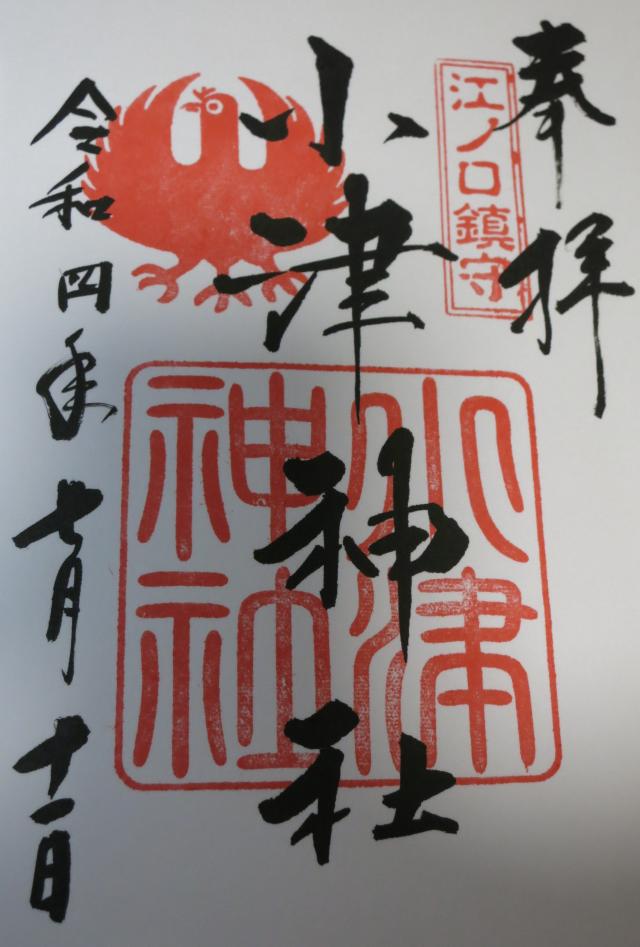 奉拝
江ノ口鎮守
小津神社
小津神社
令和四年七月十一日